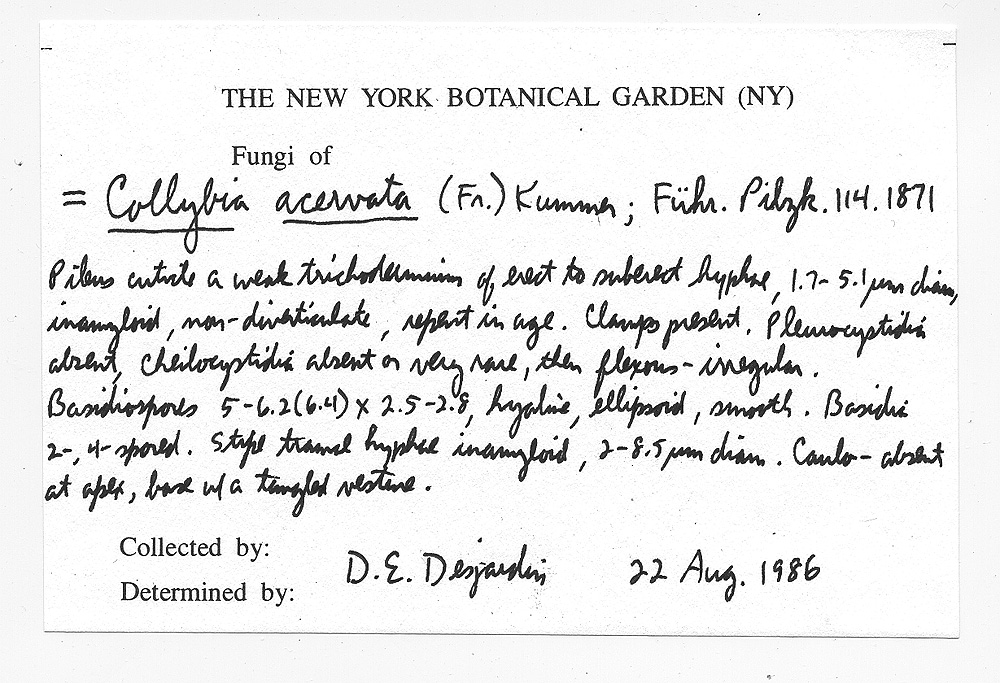 THE NEW YORK BOTANICAL GARDEN (NY)
Fungi of
= Collybia acervata (Fr.) Kummer; Führ. Pilzk. 114. 1871
Pileus cuticle a weak trichodermium of erect to suberect hyphae, 1.7-5.1 µm diam,
inamyloid, non-diverticulate, repent in age. Clamps present. Pleurocystidia
absent, cheilocystidia absent or very rare, then flexous-irregular.
Basidiospores 5-6.2(6.4) x 2.5-2.8, hyaline, ellipsoid, smooth. Basidia
2-, 4-spored. Stipe tramal hyphae inamyloid, 2-8.5 µm diam. Caulo- absent
at apex, base w/a tangled vesture.
Collected by:
D.E. Desjardin 22 Aug. 1986
Determined by: